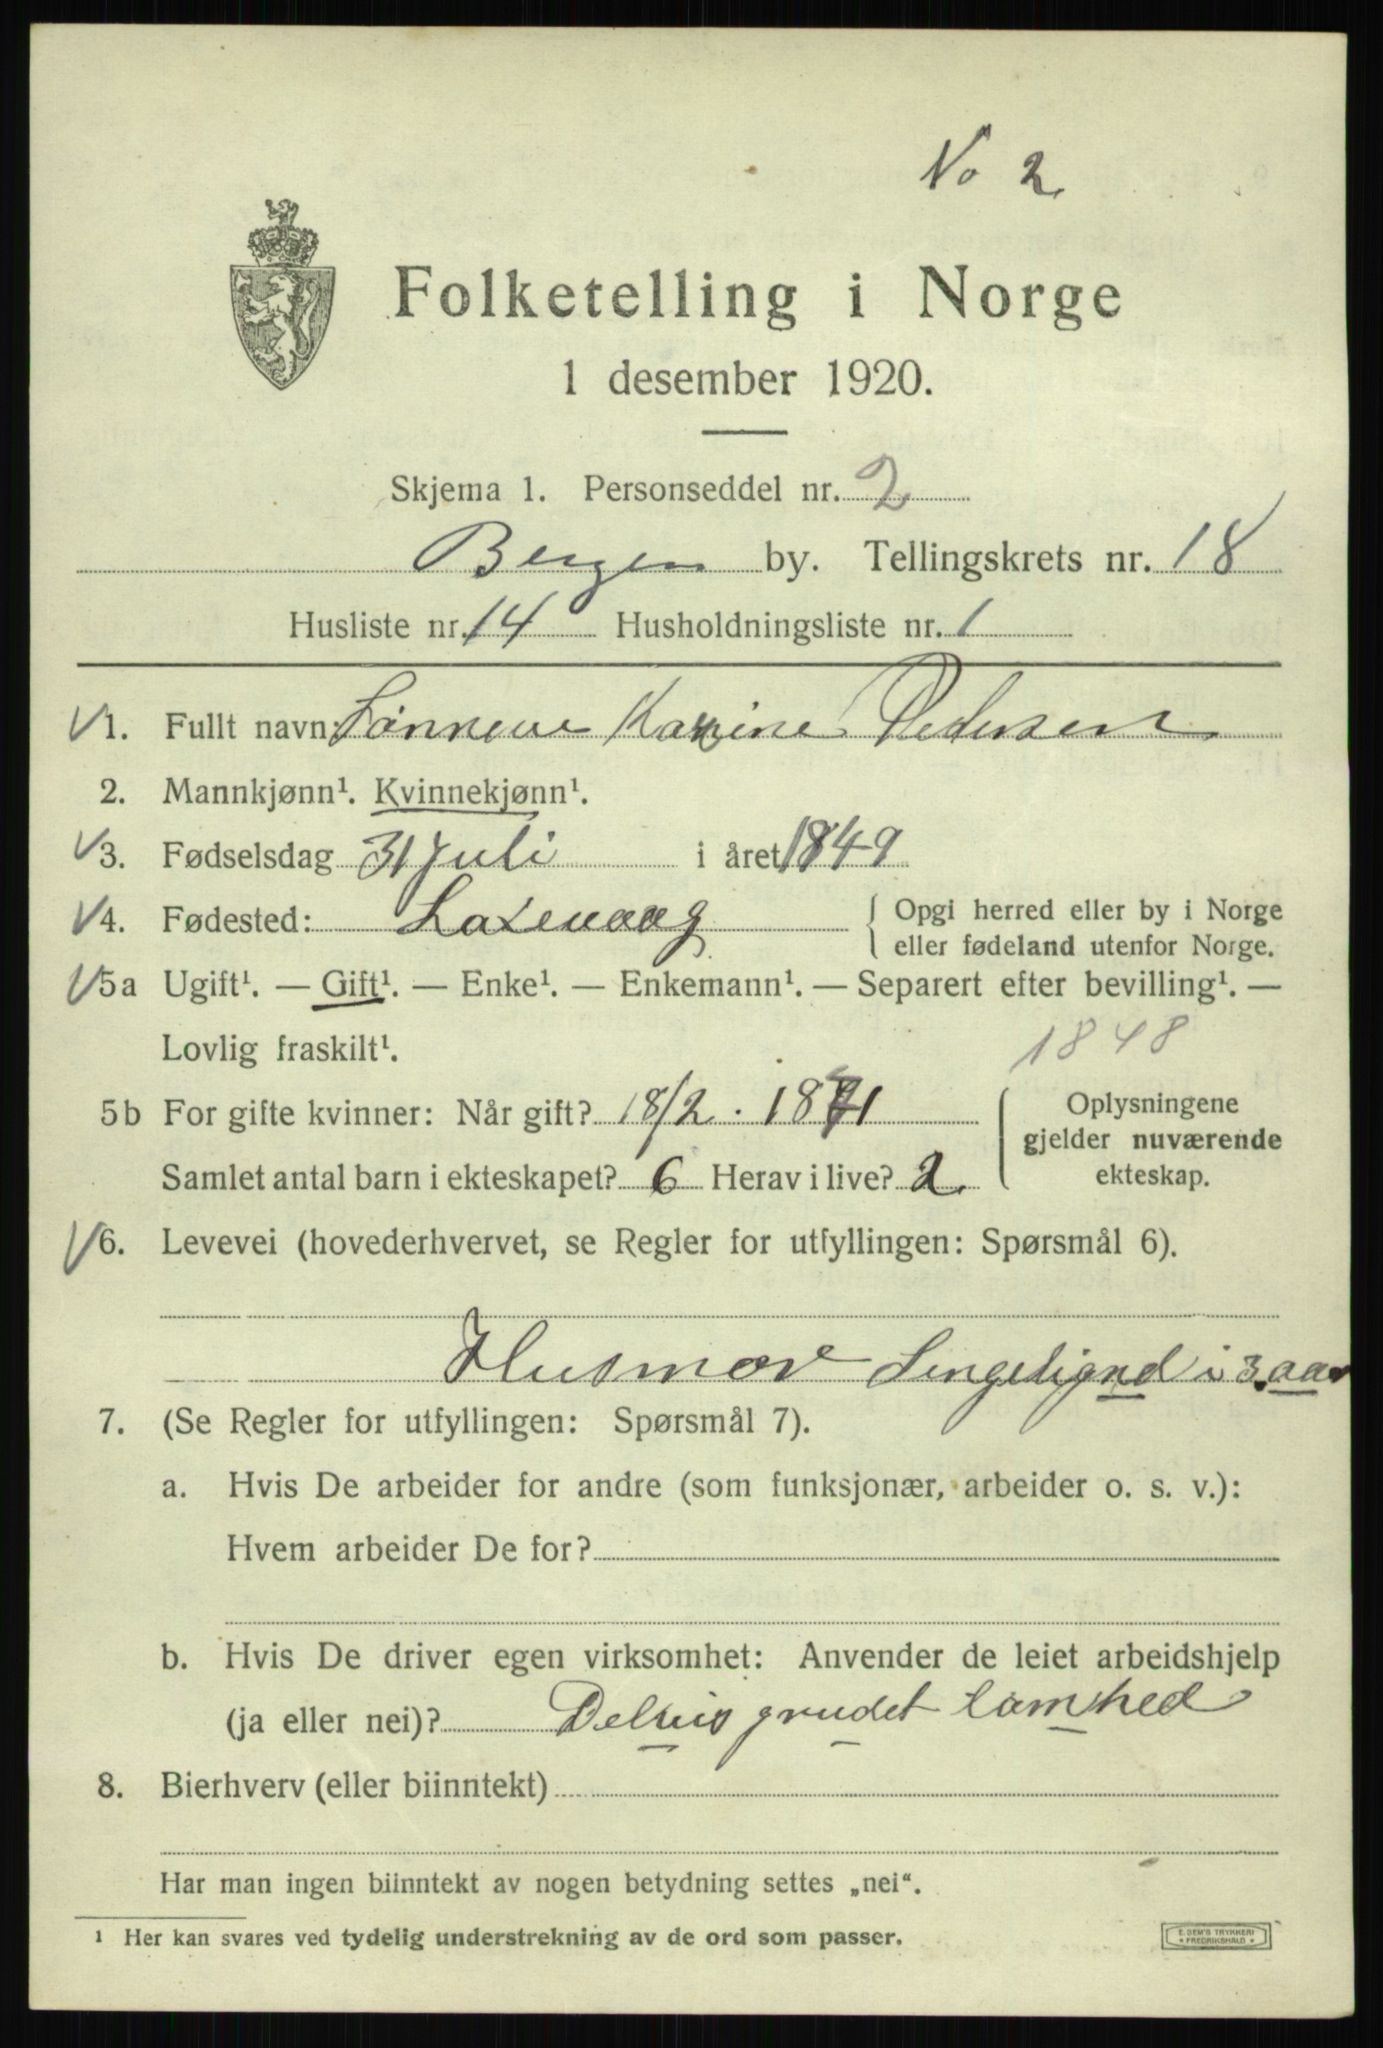 No 2
Folketelling i Norge
1 desember 1920.
Skjema 1. Personseddel nr. 2
Bergen by. Tellingskrets nr. 18
Husliste nr. 14 Husholdningsliste nr. 1
1. Fullt navn: Karine Pedersen
2. Mannkjønn¹. Kvinnekjønn¹.
3. Fødselsdag 31 Juli i året 1849
4. Fødested: Laxevaag { Opgi herred eller by i Norge
eller fødeland utenfor Norge.
5a Ugift¹. — Gift¹. — Enke¹. — Enkemann¹. — Separert efter bevilling¹. —
Lovlig fraskilt¹.
1848
5b For gifte kvinner: Når gift? 18/2. 1871
Samlet antal barn i ekteskapet? 6 Herav i live? 2
Oplysningene
gjelder nuværende
ekteskap.
6. Levevei (hovederhvervet, se Regler for utfyllingen: Spørsmål 6).
Husmor Sengelignd i 3 aar
7. (Se Regler for utfyllingen: Spørsmål 7).
a. Hvis De arbeider for andre (som funksjonær, arbeider o. s. v.):
Hvem arbeider De for?
b. Hvis De driver egen virksomhet: Anvender de leiet arbeidshjelp
(ja eller nei)? grudet lamhed
8. Bierhverv (eller biinntekt)
Har man ingen biinntekt av nogen betydning settes „nei“.
¹ Her kan svares ved tydelig understrekning av de ord som passer.
E. SEM'S TRYKKERI
* FREDRIKSHALD *